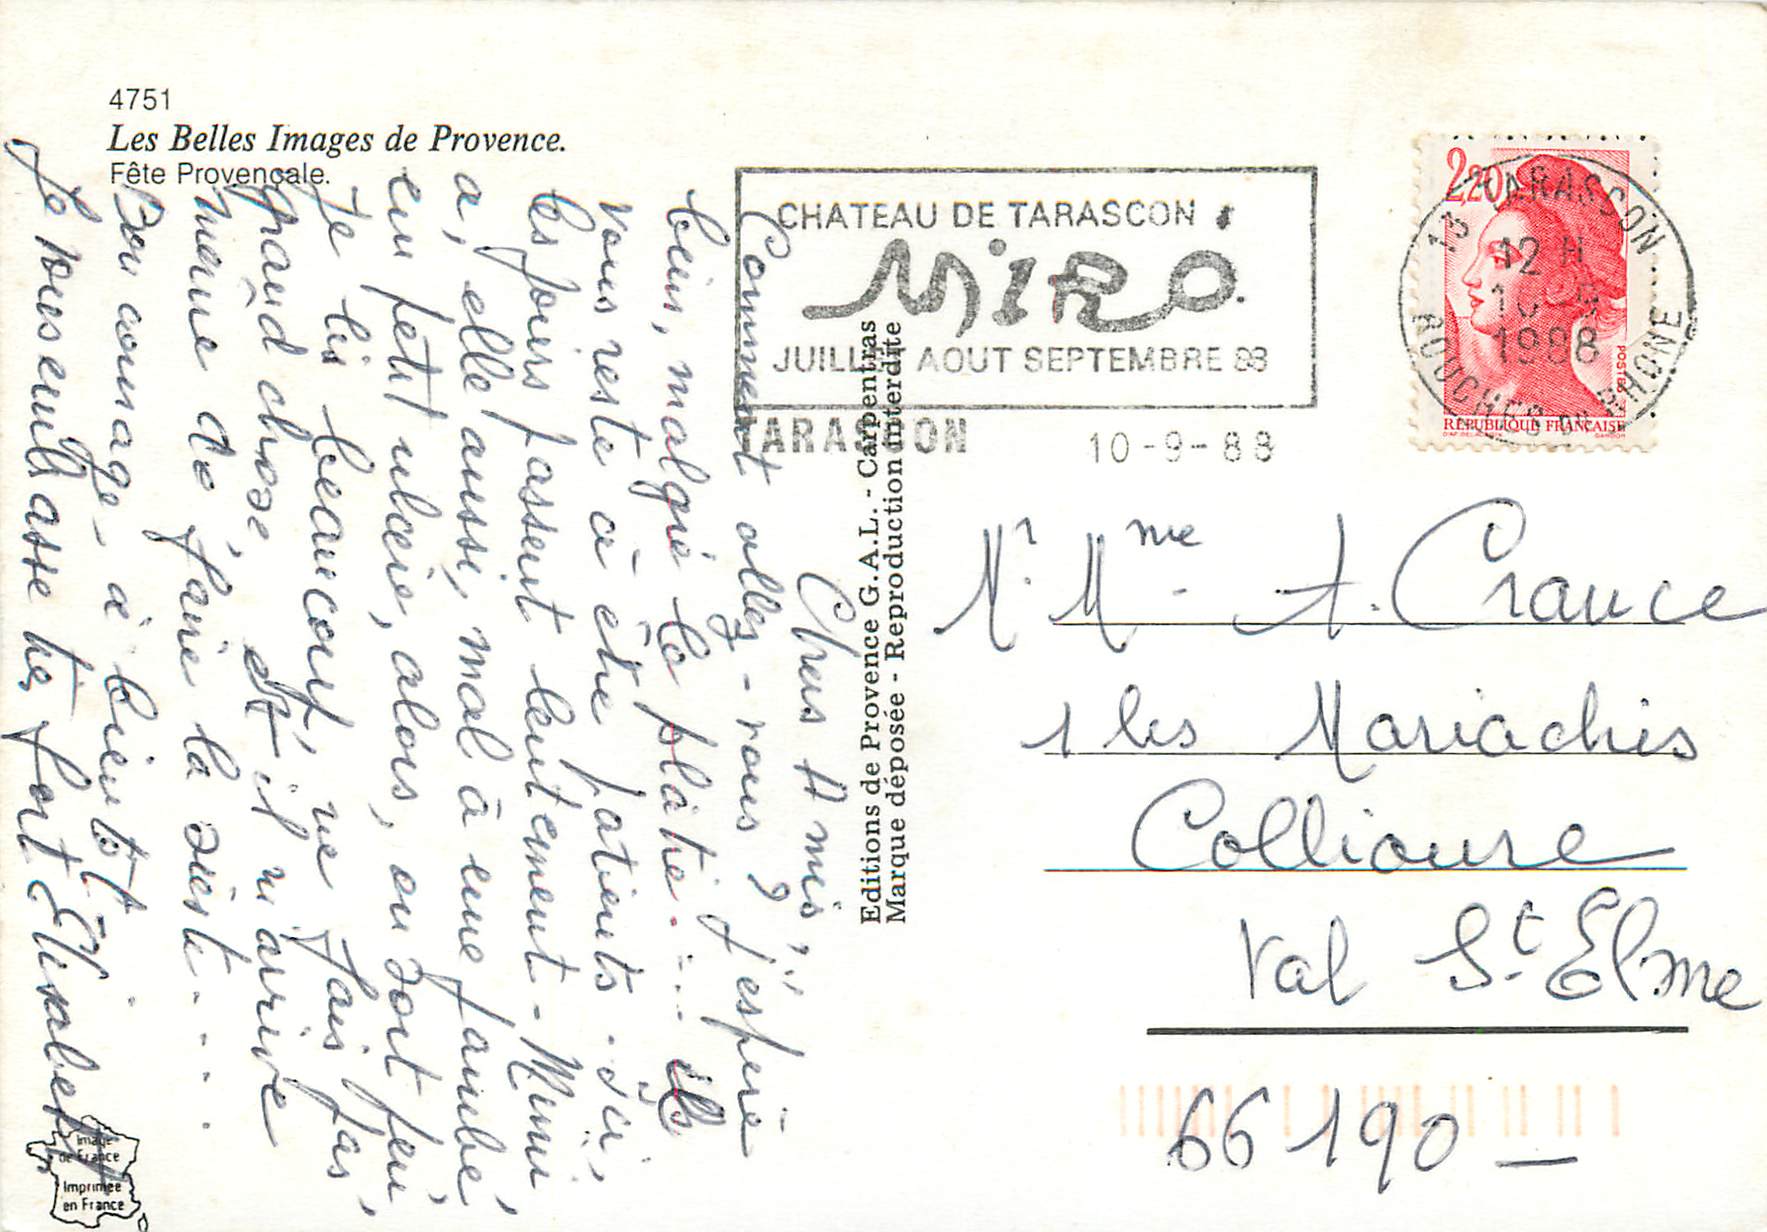 4751
Les Belles Images de Provence.
Fête Provençale.
CHATEAU DE TARASCON
MIRÓ
JUILLET AOUT SEPTEMBRE 88
TARASCON
10-9-88
2,20
13 TARASCON
12 H
10 -9
1988
BOUCHES DU RHONE
POSTES
REPUBLIQUE FRANÇAISE
Editions de Provence G.A.L. - Carpentras
Marque déposée - Reproduction interdite
Chers Amis,
Comment allez-vous ? j'espère
bien, malgré le plâtre.... ils
vous reste à être patients. Ici,
les jours passent lentement - Mimi
a, elle aussi, mal à une jambe,
un petit ulcère, alors, on sort peu,
Je lis beaucoup, ne fais pas,
grand chose, et il m'arrive
même de faire la sieste.....
Bon courage - à bientôt.
Je vous embrasse très fort Elisabeth
Mr. Mme. A. Crance
1 les Mariachis
Collioure
Val St. Elme
66190 —
Image
de France
Imprimée
en France